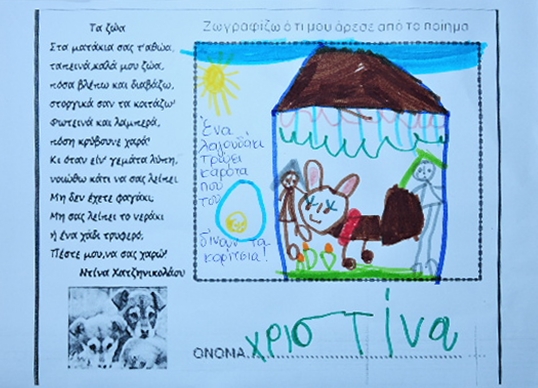 Τα ζώα
Στα ματάκια σας τ'αθώα,
ταπεινά,καλά μου ζώα,
πόσα βλέπω και διαβάζω,
στοργικά σαν τα κοιτάζω!
Φωτεινά και λαμπερά,
πόση κρύβουνε χαρά!
Κι όταν είν' γεμάτα λύπη,
νοιώθω κάτι να σας λείπει
Μη δεν έχετε φαγάκι,
Μη σας λείπει το νεράκι
ή ένα χάδι τρυφερό;
Πέστε μου,να σας χαρώ!
Ντίνα Χατζηνικολάου
Ζωγραφίζω ό τι μου άρεσε από το ποίημα
Ένα
λαγουδάκι
τρώει
καρότα
που
του
δίνουν τα
κορίτσια!
ΟΝΟΜΑ χριστίνα